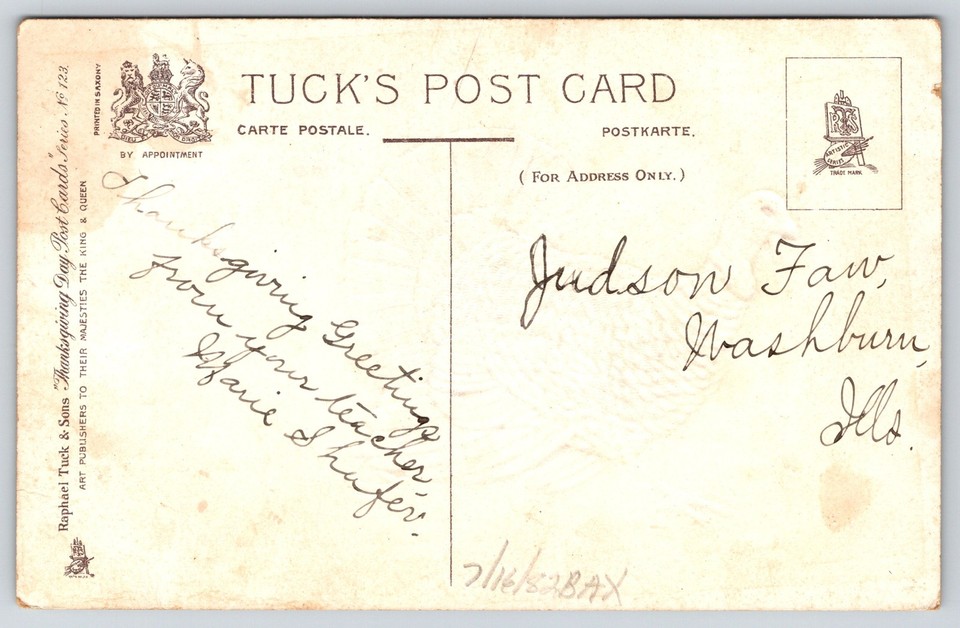 TUCK'S POST CARD
CARTE POSTALE.
POSTKARTE.
(FOR ADDRESS ONLY.)
BY APPOINTMENT
PRINTED IN SAXONY
Raphael Tuck & Sons "Thanksgiving Day Post Cards" Series No 123.
ART PUBLISHERS TO THEIR MAJESTIES THE KING & QUEEN
ARTISTIC SERIES
TRADE MARK
Thanksgiving Greetings
from your teacher,
Marie Shufer.
Judson Faw,
Washburn,
Ills.
7/16/82 BAX